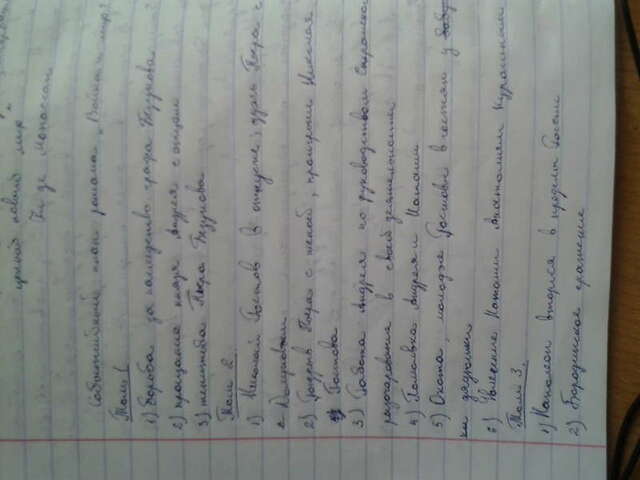 ценный новый мир"
Ги де Мопассан
Событийный план романа „Война и мир"
Том 1
1) Борьба за наследство графа Безухова
2) прощание князя Андрея с отцом
3) женитьба Пьера Безухова
Том 2
1) Николай Ростов в отпуске, дуэль Пьера с
с Долоховым
2) Разрыв Пьера с женой, проигрыш Николая
Ростова
3) Работа Андрея по руководством Сперанского
разочарование в своей деятельности
4) Помолвка Андрея и Наташи
5) Охота, молодые Ростовы в гостях у
их дядюшки
6) Увлечение Наташи Анатолием Курагиным
Том 3.
1) Наполеон вторгся в пределы России
2) Бородинское сражение